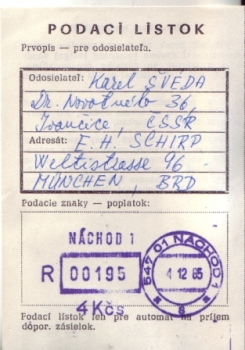 PODACÍ LÍSTOK
Prvopis — pre odosielateľa.
Odosielateľ: Karel ŠVEDA
Dr. Novotného 36,
Ivančice, ČSSR
Adresát: E. H. SCHIRP
Weltistrasse 96
MÜNCHEN, BRD
Podacie znaky — poplatok:
NÁCHOD 1
R 00195
4 Kčs
547 01 NÁCHOD 1
4 12 85
s
Podací lístok len pre automat na príjem
dopor. zásielok.